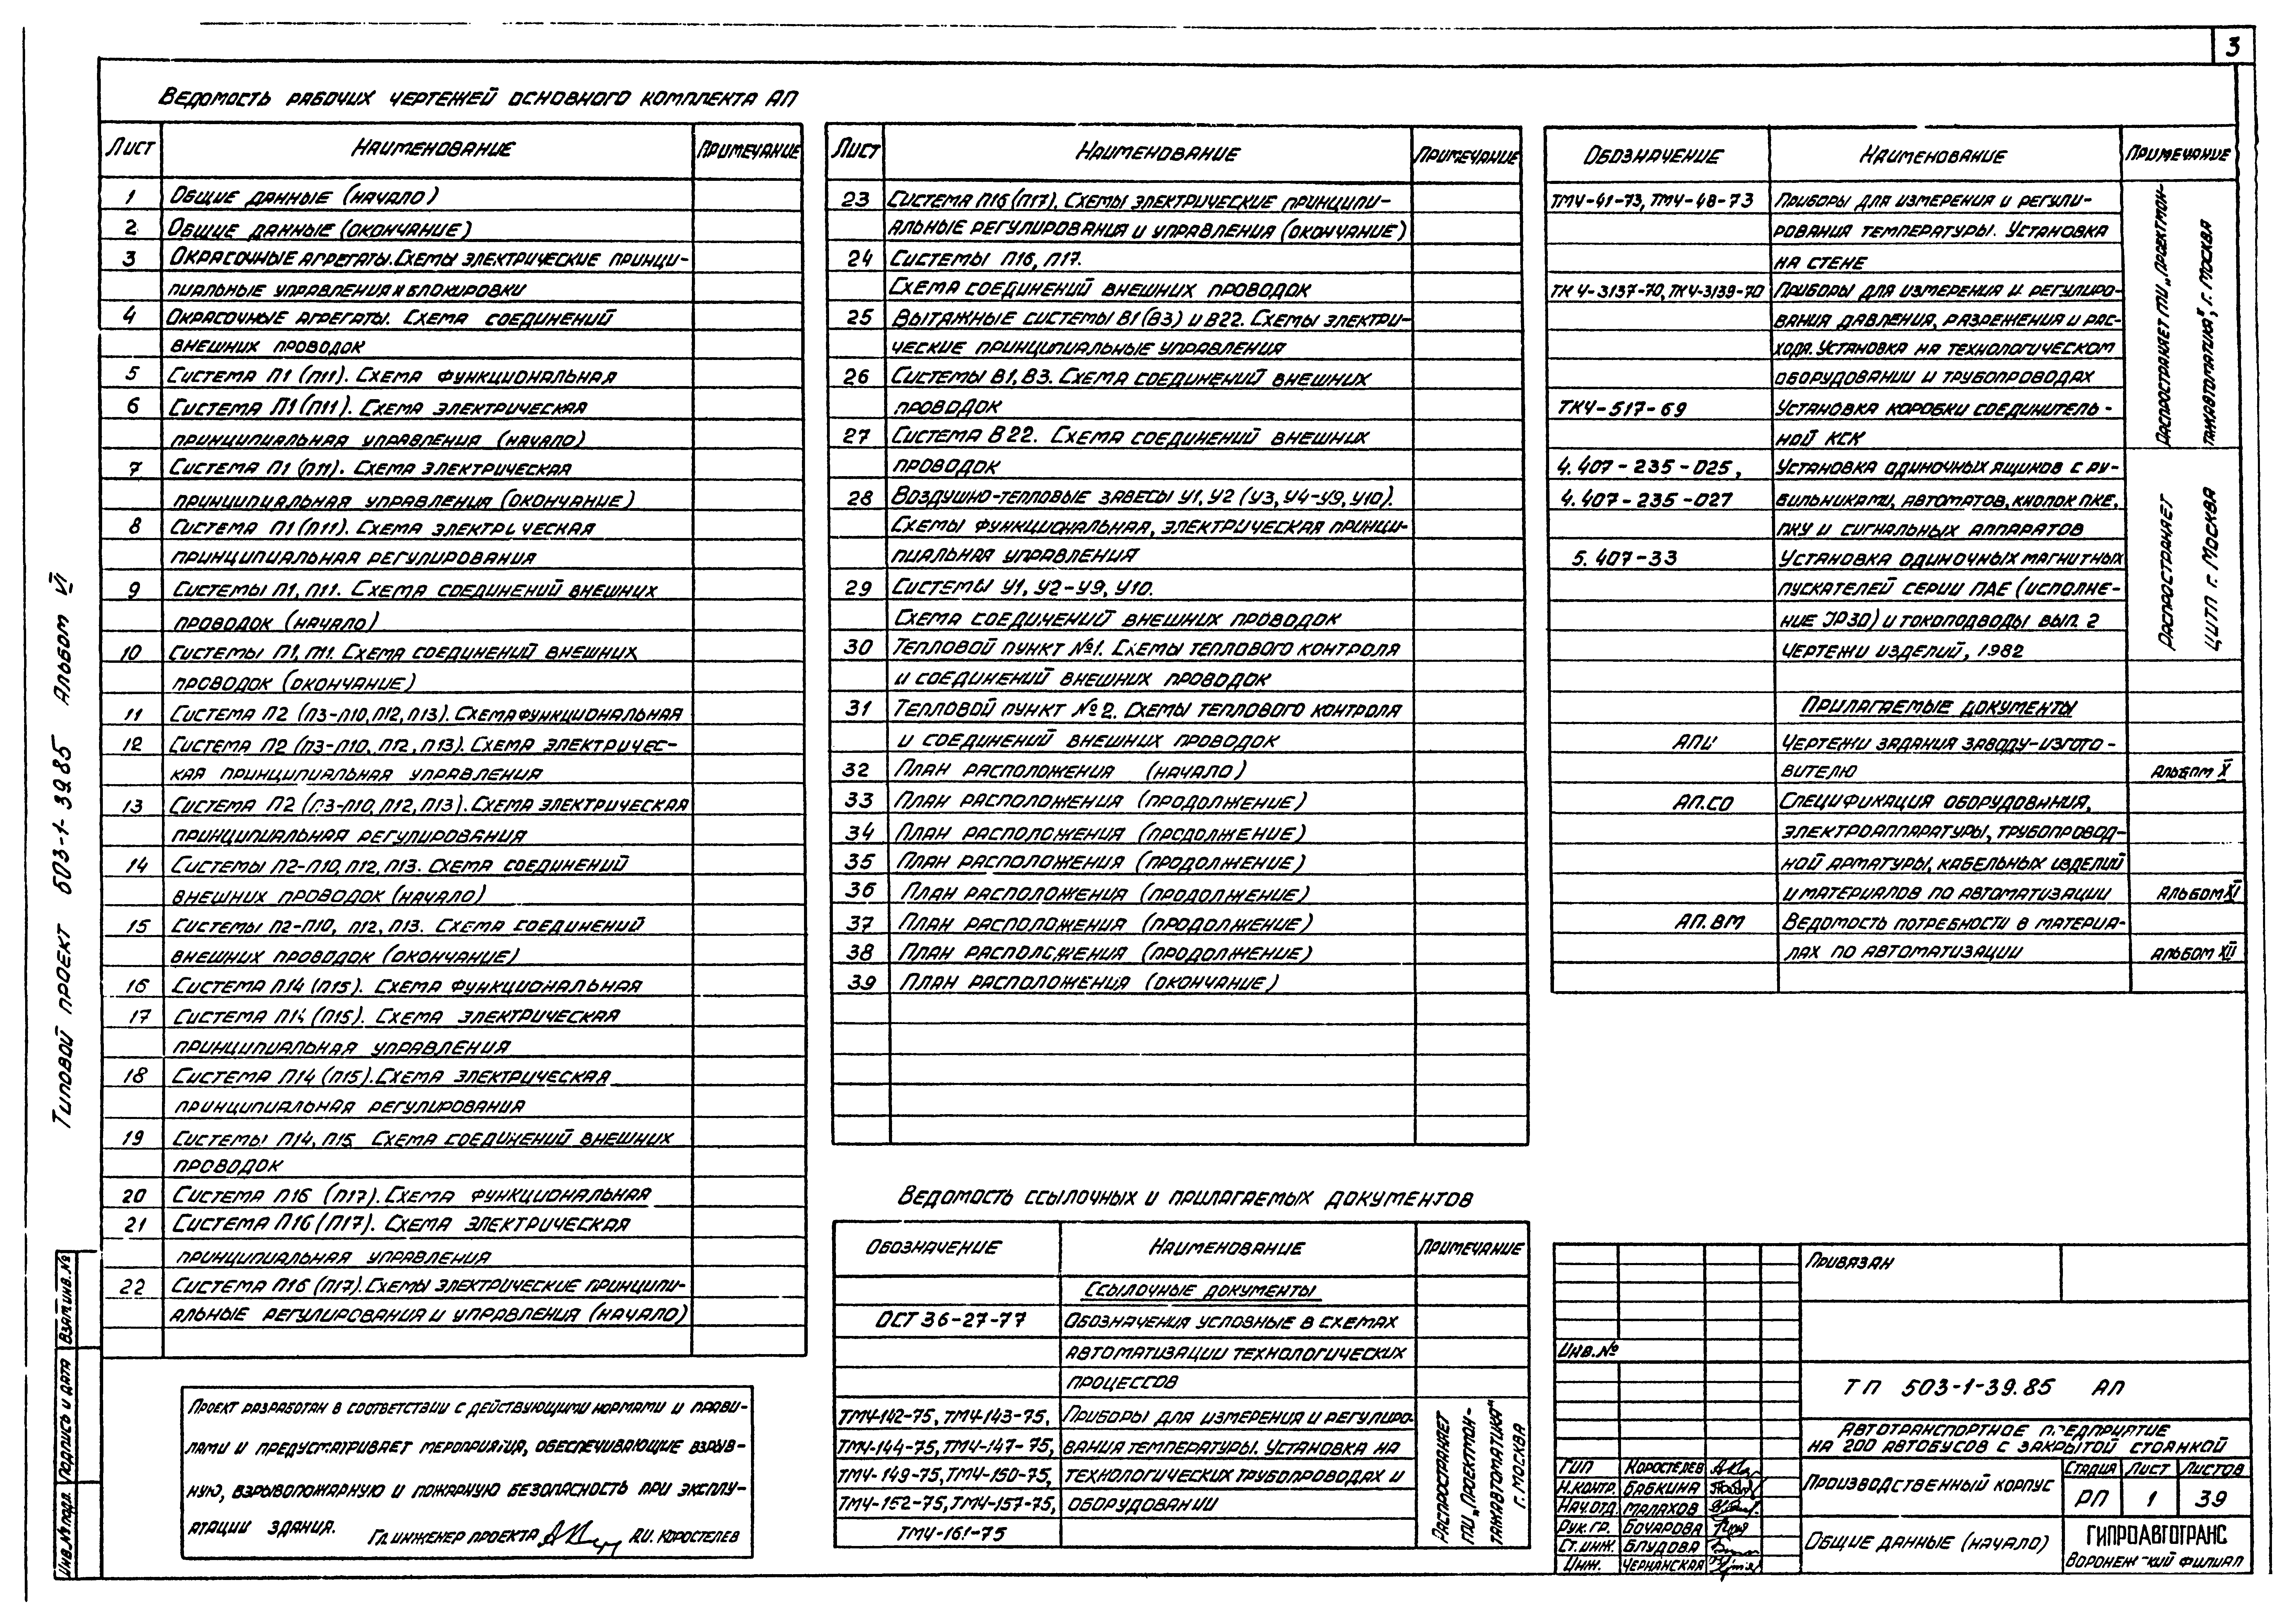 3
Ведомость рабочих чертежей основного комплекта АП
Лист Наименование Примечание
1 Общие данные (начало)
2 Общие данные (окончание)
3 Окрасочные агрегаты. Схемы электрические принци-
пиальные управления и блокировки
4 Окрасочные агрегаты. Схема соединений
внешних проводок
5 Система П1 (П11). Схема функциональная
6 Система П1 (П11). Схема электрическая
принципиальная управления (начало)
7 Система П1 (П11). Схема электрическая
принципиальная управления (окончание)
8 Система П1 (П11). Схема электрическая
принципиальная регулирования
9 Системы П1, П11. Схема соединений внешних
проводок (начало)
10 Системы П1, П11. Схема соединений внешних
проводок (окончание)
11 Система П2 (П3-П10, П12, П13). Схема функциональная
12 Система П2 (П3-П10, П12, П13). Схема электричес-
кая принципиальная управления
13 Система П2 (П3-П10, П12, П13). Схема электрическая
принципиальная регулирования
14 Системы П2-П10, П12, П13. Схема соединений
внешних проводок (начало)
15 Системы П2-П10, П12, П13. Схема соединений
внешних проводок (окончание)
16 Система П14 (П15). Схема функциональная
17 Система П14 (П15). Схема электрическая
принципиальная управления
18 Система П14 (П15). Схема электрическая
принципиальная регулирования
19 Системы П14, П15 Схема соединений внешних
проводок
20 Система П16 (П17). Схема функциональная
21 Система П16 (П17). Схема электрическая
принципиальная управления
22 Система П16 (П17). Схемы электрические принципи-
альные регулирования и управления (начало)
Лист Наименование Примечание
23 Система П16 (П17). Схемы электрические принципи-
альные регулирования и управления (окончание)
24 Системы П16, П17.
Схема соединений внешних проводок
25 Вытяжные системы В1 (В3) и В22. Схемы электри-
ческие принципиальные управления
26 Системы В1, В3. Схема соединений внешних
проводок
27 Система В22. Схема соединений внешних
проводок
28 Воздушно-тепловые завесы У1, У2 (У3, У4-У9, У10).
Схемы функциональная, электрическая принци-
пиальная управления
29 Системы У1, У2-У9, У10.
Схема соединений внешних проводок
30 Тепловой пункт №1. Схемы теплового контроля
и соединений внешних проводок
31 Тепловой пункт №2. Схемы теплового контроля
и соединений внешних проводок
32 План расположения (начало)
33 План расположения (продолжение)
34 План расположения (продолжение)
35 План расположения (продолжение)
36 План расположения (продолжение)
37 План расположения (продолжение)
38 План расположения (продолжение)
39 План расположения (окончание)
Ведомость ссылочных и прилагаемых документов
Обозначение Наименование Примечание
Ссылочные документы
ОСТ 36-27-77 Обозначения условные в схемах
автоматизации технологических
процессов
ТМ4-142-75, ТМ4-143-75, Приборы для измерения и регулиро-
ТМ4-144-75, ТМ4-147-75, вания температуры. Установка на
ТМ4-149-75, ТМ4-150-75, технологических трубопроводах и
ТМ4-152-75, ТМ4-157-75, оборудовании
ТМ4-161-75
Распространяет
ГПИ „Проектмон-
тажавтоматика"
г. Москва
Обозначение Наименование Примечание
ТМ4-41-73, ТМ4-48-73 Приборы для измерения и регули-
рования температуры. Установка
на стене
ТК4-3137-70, ТК4-3139-70 Приборы для измерения и регулиро-
вания давления, разрежения и рас-
хода. Установка на технологическом
оборудовании и трубопроводах
ТК4-517-69 Установка коробки соединитель-
ной КСК
4.407-235-025, Установка одиночных ящиков с ру-
4.407-235-027 бильниками, автоматов, кнопок ПКЕ,
ПКУ и сигнальных аппаратов
5.407-33 Установка одиночных магнитных
пускателей серии ПАЕ (исполне-
ние JP30) и токоподводы вып. 2
Чертежи изделий, 1982
Распространяет ГПИ „Проектмон-
тажавтоматика", г. Москва
Распространяет
ЦИТП г. Москва
Прилагаемые документы
Чертежи задания заводу-изгото-
вителю Альбом X
АП.СО Спецификация оборудования,
электроаппаратуры, трубопровод-
ной арматуры, кабельных изделий
и материалов по автоматизации Альбом XI
АП.ВМ Ведомость потребности в материа-
лах по автоматизации Альбом XII
Проект разработан в соответствии с действующими нормами и прави-
лами и предусматривает мероприятия, обеспечивающие взрыв-
ную, взрывопожарную и пожарную безопасность при эксплу-
атации здания.
Гл. инженер проекта А.И. Коростелев
Привязан
Инв. №
ТП 503-1-39.85 АП
Автотранспортное предприятие
на 200 автобусов с закрытой стоянкой
ГИП Коростелев
Н.контр. Бабкина
Нач.отд. Малахов
Рук.гр. Бочарова
Ст.инж. Блудова
Инж. Чернянская
Производственный корпус
Стадия Лист Листов
РП 1 39
Общие данные (начало)
ГИПРОАВТОТРАНС
Воронежский филиал
Типовой проект 503-1-39.85 Альбом VI
Инв.№ подл. Подпись и дата Взам.инв.№